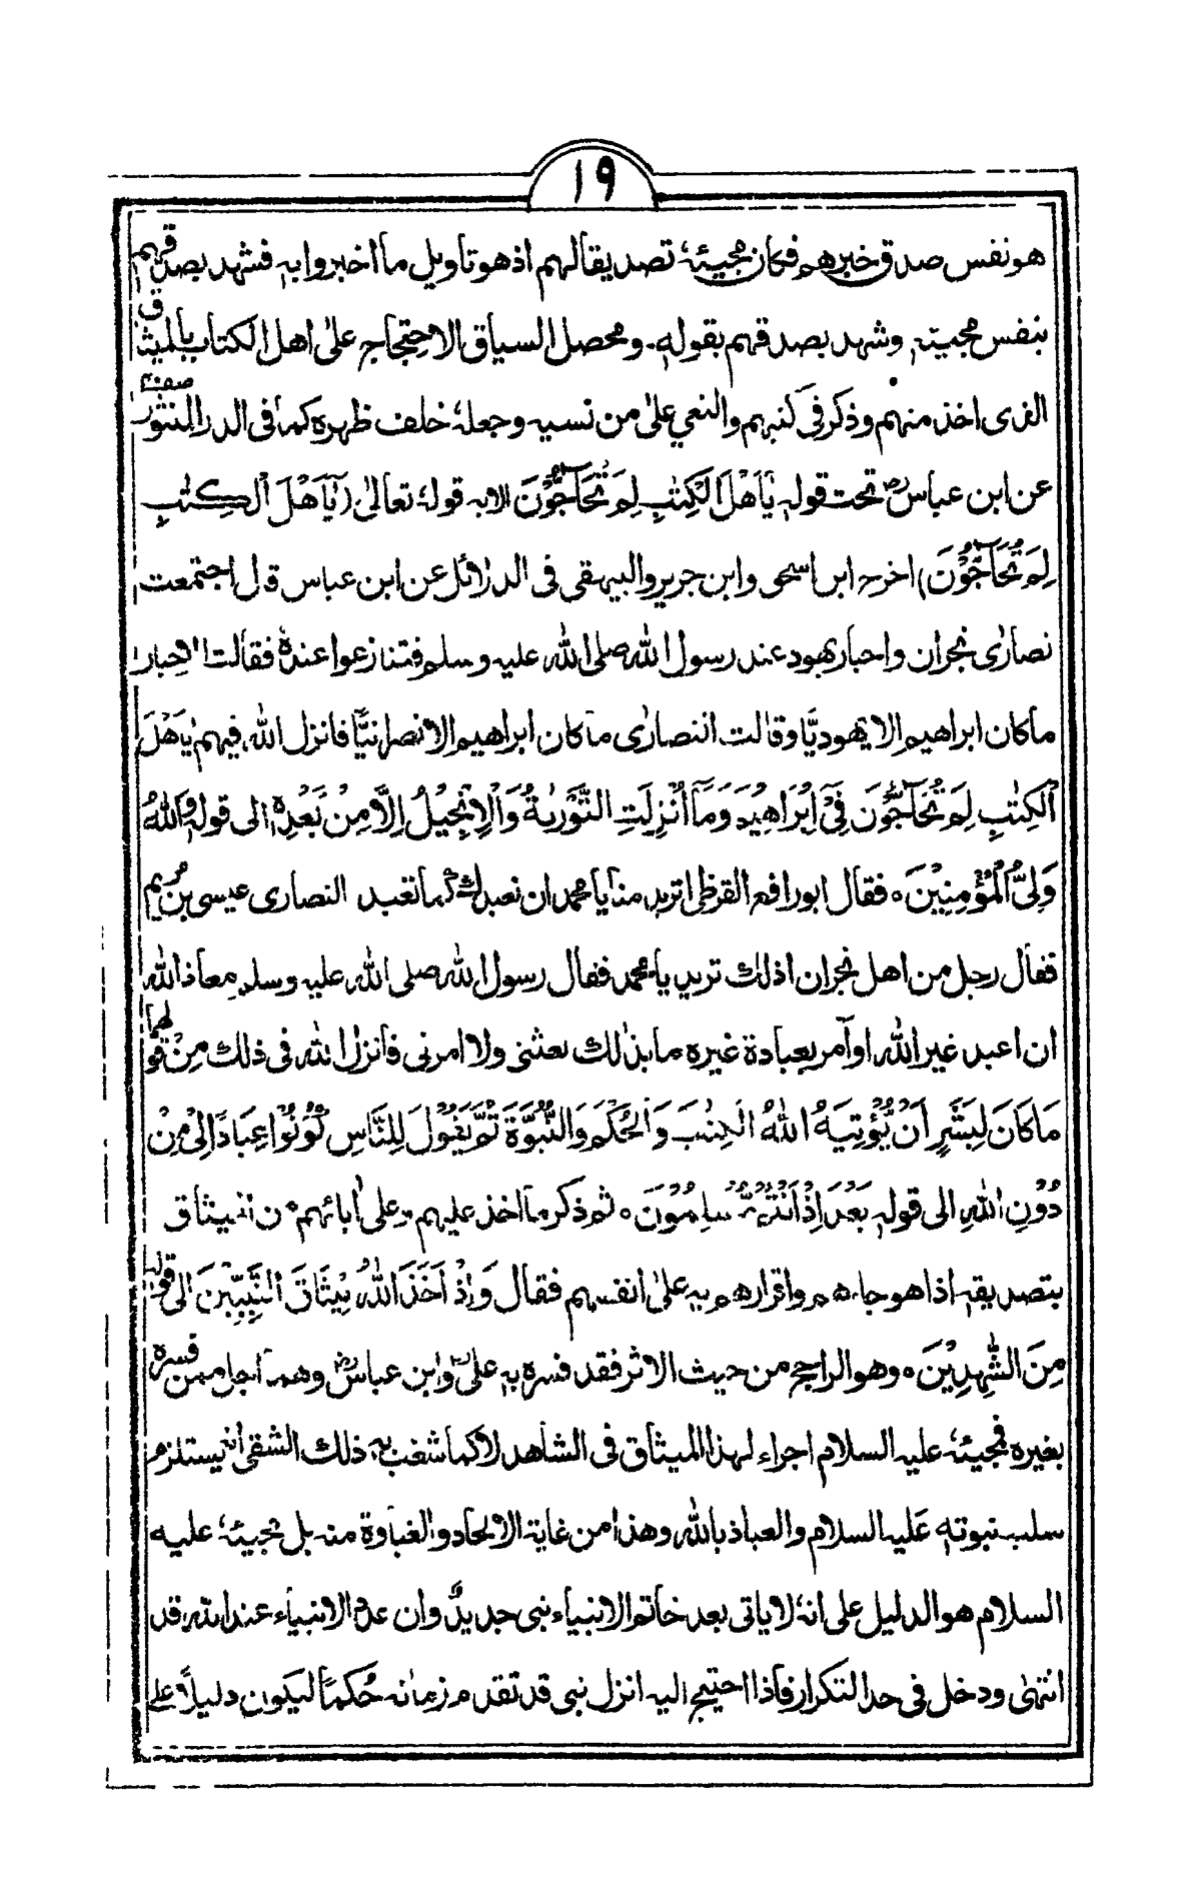 ١٩
هو نفس صدق خبرهم فكان مجيئهٗ تصديقا لهم اذ هو تاويل ما اخبروا بهٖ فشهد بصدقهم
بنفس مجيئهٖ وشهد بصدقهم بقولهٖ۔ ومحصل السياق الاحتجاج علىٰ اهل الكتاب بالميثاق
الذى اخذ منهم وذكر فى كتبهم والنعي علىٰ من نسيه وجعلهٗ خلف ظهره كما فى الدر المنثور صفحہ
عن ابن عباسؓ تحت قولهٖ يٰۤاَهْلَ الْكِتٰبِ لِمَ تُحَآجُّوْنَ الايه قولهٗ تعالىٰ (يٰۤاَهْلَ الْكِتٰبِ
لِمَ تُحَآجُّوْنَ) اخرج ابن اسحٰق وابن جرير والبيهقى فى الدلائل عن ابن عباس قال اجتمعت
نصارٰى نجران واحبار يهود عند رسول الله صلى الله عليه وسلم فتنازعوا عندهٗ فقالت الاحبار
ما كان ابراهيم الا يهوديًّا وقالت النصارٰى ما كان ابراهيم الا نصرانيًّا فانزل الله فيهم يٰاَهْلَ
الْكِتٰبِ لِمَ تُحَآجُّوْنَ فِىْۤ اِبْرَاهِيْمَ وَمَاۤ اُنْزِلَتِ التَّوْرٰىةُ وَالْاِنْجِيْلُ اِلَّا مِنْۢ بَعْدِهٖ الى قولهٖ وَاللهُ
وَلِىُّ الْمُؤْمِنِيْنَ ه فقال ابو رافع القرظى اتريد منا يا محمد ان نعبدك كما تعبد النصارى عيسى بن مريم
فقال رجل من اهل نجران اذلك تريد يا محمد فقال رسول الله صلى الله عليه وسلم معاذ الله
ان اعبد غير الله او اٰمر بعبادة غيره ما بذٰلك بعثنى ولا امرنى فانزل الله فى ذلك مِنْ قولهما
مَا كَانَ لِبَشَرٍ اَنْ يُّؤْتِيَهُ اللهُ الْكِتٰبَ وَالْحُكْمَ وَالنُّبُوَّةَ ثُمَّ يَقُوْلَ لِلنَّاسِ كُوْنُوْا عِبَادًا لِّىْ مِنْ
دُوْنِ اللهِ الى قولهٖ بَعْدَ اِذْ اَنْتُمْ مُّسْلِمُوْنَ ه ثم ذكر ما اخذ عليهم وعلىٰ اٰبائهم من الميثاق
بتصديقهٖ اذا هو جاءهم واقرارهم بهٖ علىٰ انفسهم فقال وَاِذْ اَخَذَ اللهُ مِيْثَاقَ النَّبِيّٖنَ الى قولهٖ
مِنَ الشّٰهِدِيْنَ ه وهو الراجح من حيث الاثر فقد فسره بهٖ علىؓ وابن عباسؓ وهما اجل ممن فسره
بغيره فمجيئهٗ عليه السلام اجراء لهذا الميثاق فى الشاهد لا كما شغب بهٖ ذلك الشقى انه يستلزم
سلب نبوتهٖ عليه السلام والعياذ بالله وهذا من غاية الالحاد والغباوة منه بل مجيئهٗ عليه
السلام هو الدليل على انهٗ لا ياتى بعد خاتم الانبياء نبى جديدٌ وان عدد الانبياء عند الله قد
انتهٰى ودخل فى حد التكرار فاذا احتيج اليه انزل نبى قد تقدم زمانه حُكمًا ليكون دليلًا على